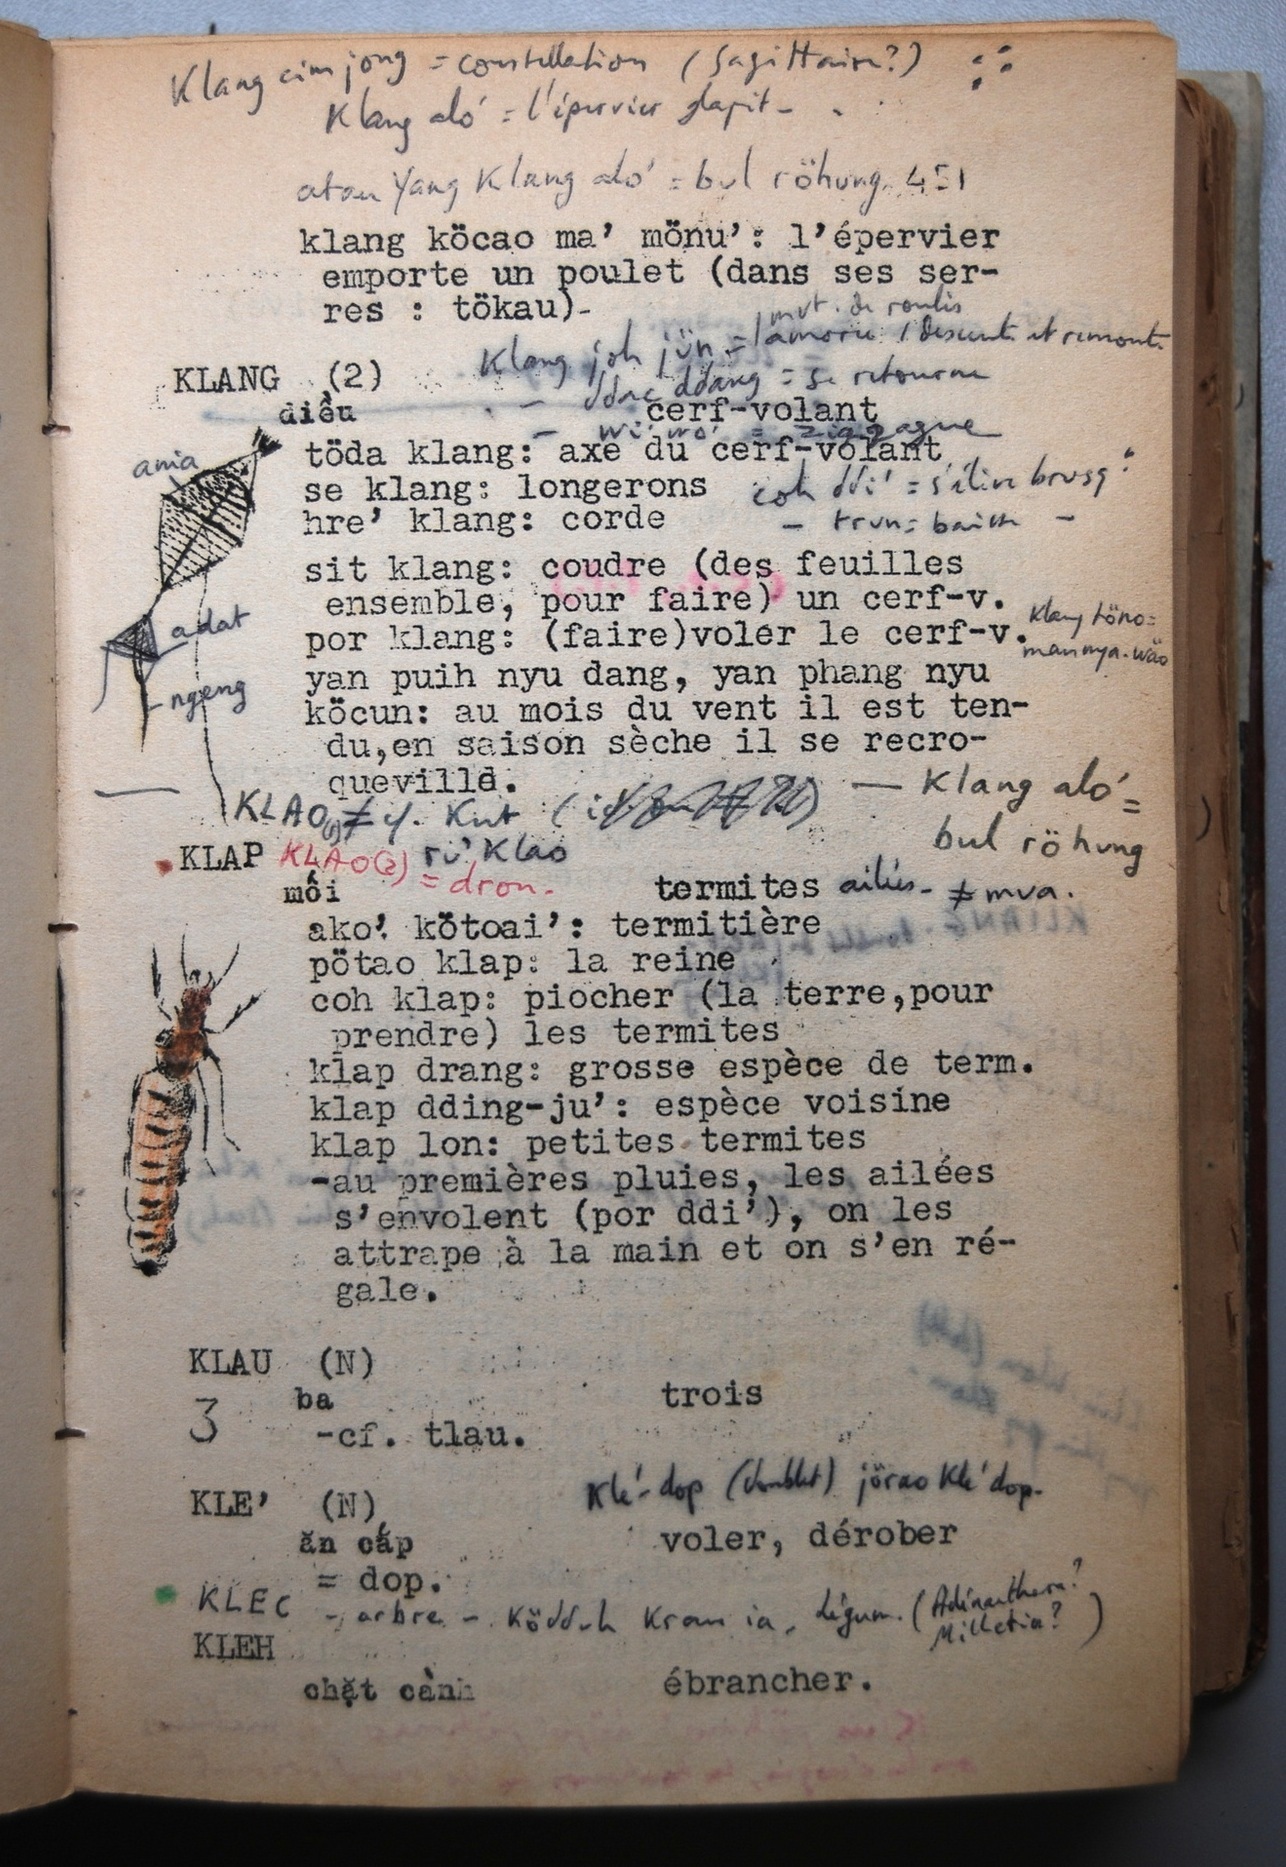 Klang cim jong = constellation (Sagittaire?)
Klang aló = l'épervier glapit -
atau Yang Klang aló = bul röhung 451
klang köcao ma' mönu': l'épervier
emporte un poulet (dans ses ser-
res : tökau)-
mvt. de roulis
Klang joh jün = lamorce / descente et remonte
KLANG (2)
ddac ddang = se retourne
diều cerf-volant
- wi' wo' = zigzague
töda klang: axe du cerf-volant
ania
se klang: longerons
coh ddi' = s'élève brusq
hre' klang: corde
- trun = baisse -
sit klang: coudre (des feuilles
ensemble, pour faire) un cerf-v.
adat
por klang: (faire)voler le cerf-v.
Klang töno =
yan puih nyu dang, yan phang nyu
ngeng
köcun: au mois du vent il est ten-
du,en saison sèche il se recro-
queville.
— Klang aló =
bul röhung
KLAO (1) ≠ cf. Kut
KLAP KLAO(2) rü' Klao
= dron.
mối termites ailés - ≠ mua.
ako' kötoai': termitière
pötao klap: la reine
coh klap: piocher (la terre,pour
prendre) les termites
klap drang: grosse espèce de term.
klap dding-ju': espèce voisine
klap lon: petites termites
-au premières pluies, les ailées
s'envolent (por ddi'), on les
attrape à la main et on s'en ré-
gale.
KLAU (N)
ba trois
3
-cf. tlau.
Klé-dop (doublet) jörao Klé'dop.
KLE' (N)
ăn cắp voler, dérober
= dop.
KLEC - arbre - Ködduh Kram ia, légum. (Adénanthera?
Milletia?)
KLEH
chặt cành ébrancher.